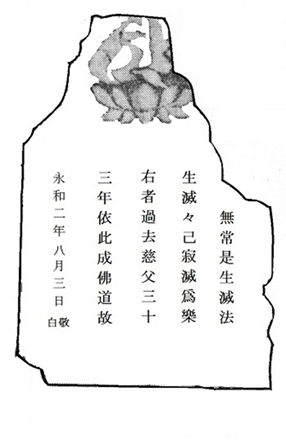 無常是生滅法
生滅々己寂滅爲樂
右者過去慈父三十
三年依此成佛道故
永和二年八月三日敬白